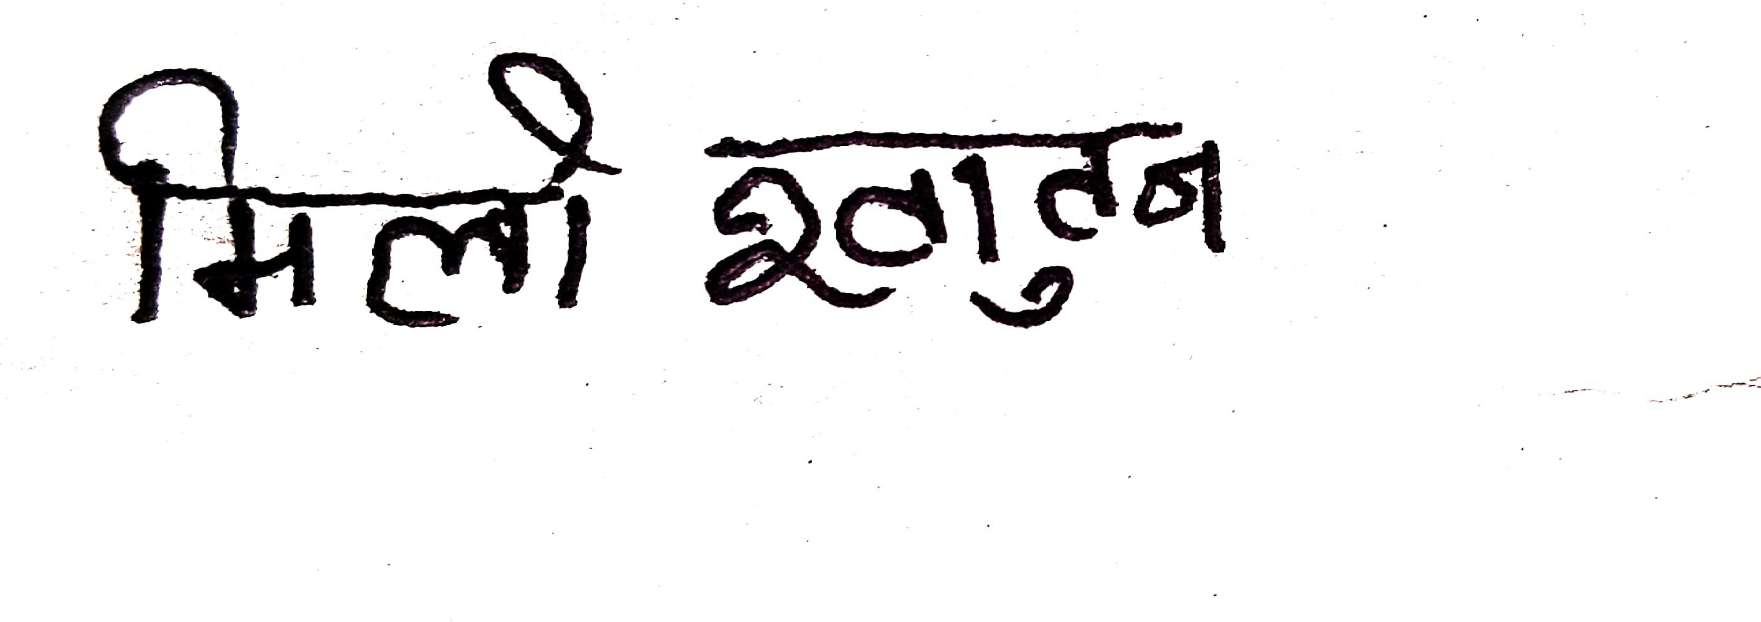 मिली खातुन